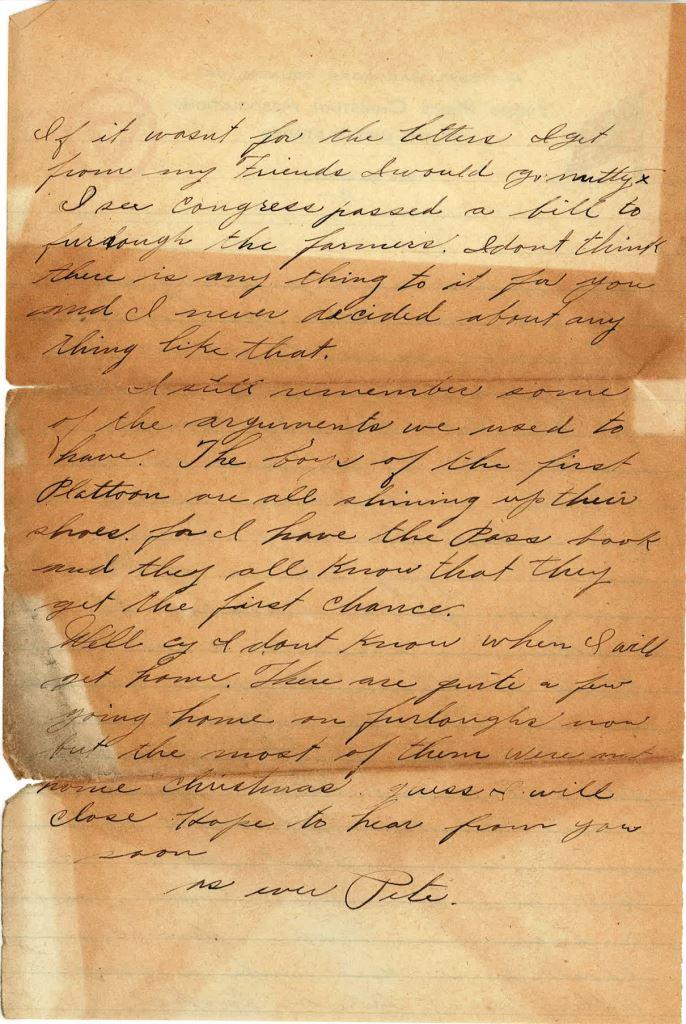 If it wasnt for the letters I get
from my Friends I would go nutty x
I see Congress passed a bill to
furlough the farmers. I dont think
there is any thing to it for you
and I never decided about any
thing like that.
I still remember some
of the arguments we used to
have. The boys of the first
Plattoon are all shining up their
shoes. for I have the Pass book
and they all Know that they
get the first chance.
Well cy I dont Know when I will
get home. There are quite a few
going home on furloughs now
but the most of them were not
home christmas. guess I will
close Hope to hear from you
soon
as ever Pete.